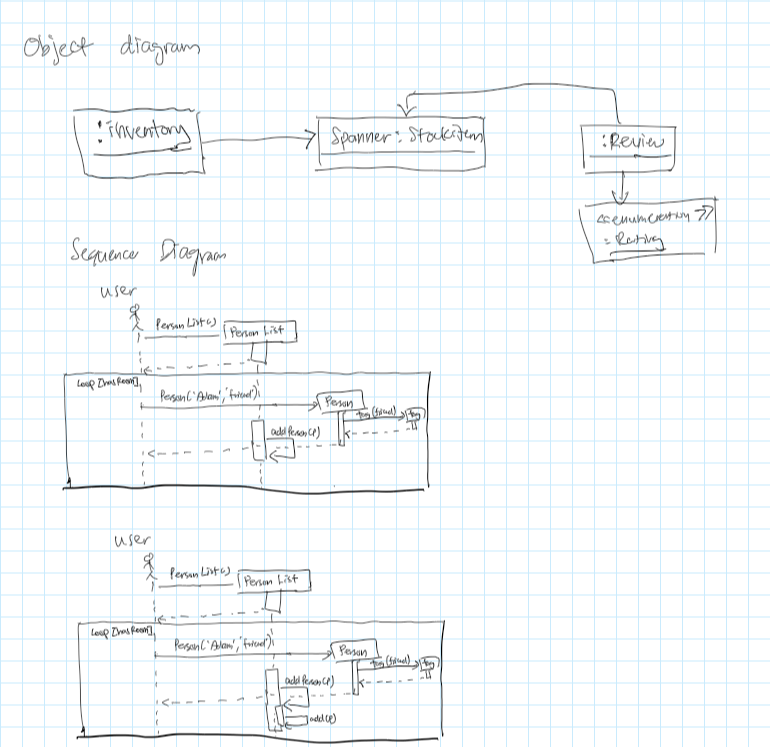 Object diagram
:inventory
Spanner: Stockitem
:Review
<<enumeration>>
: Rating
Sequence Diagram
user
PersonList()
Person List
Loop [hasRoom]
Person('Adam','friend')
Person
tag(friend)
Tag
addPerson(P)
user
PersonList()
Person List
Loop [hasRoom]
Person('Adam','friend')
Person
tag(friend)
Tag
addPerson(P)
add(P)